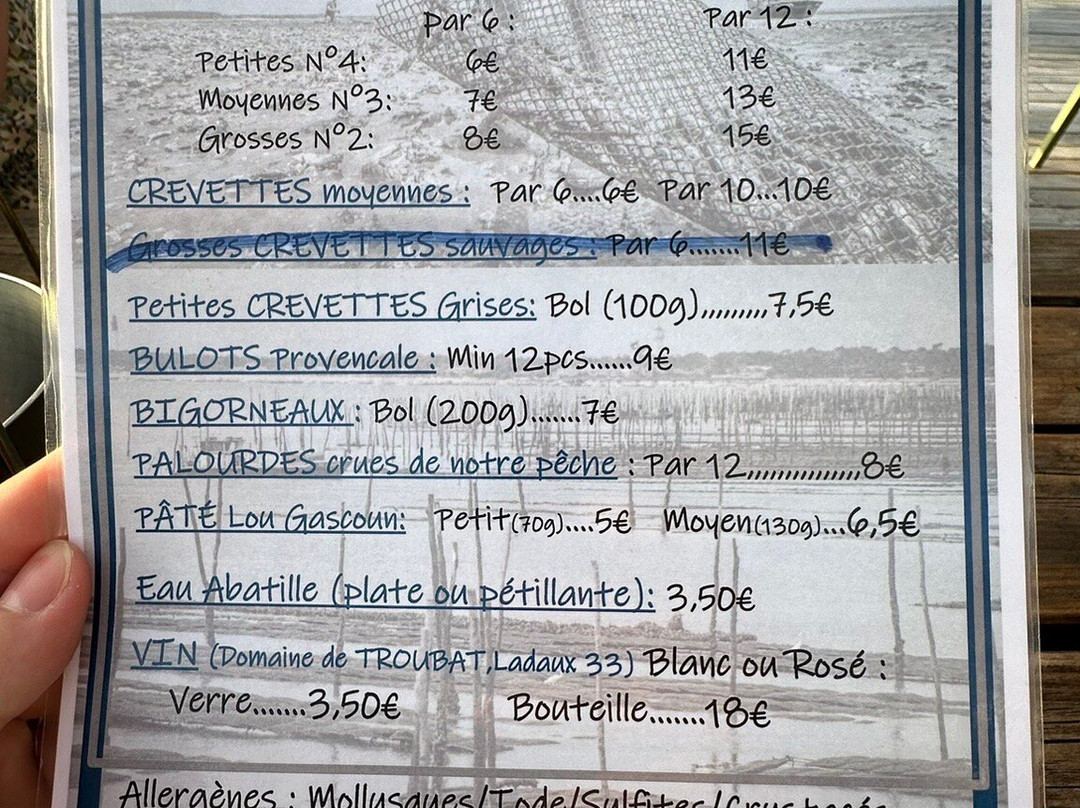 Par 6 : Par 12 :
Petites N°4: 6€ 11€
Moyennes N°3: 7€ 13€
Grosses N°2: 8€ 15€
CREVETTES moyennes : Par 6....6€ Par 10...10€
Grosses CREVETTES sauvages : Par 6.......11€
Petites CREVETTES Grises: Bol (100g),,,,,,,,,7,5€
BULOTS Provencale : Min 12pcs......9€
BIGORNEAUX : Bol (200g).......7€
PALOURDES crues de notre pêche : Par 12,,,,,,,,,,,,,,8€
PÂTÉ Lou Gascoun: Petit(70g)....5€ Moyen(130g)...6,5€
Eau Abatille (plate ou pétillante): 3,50€
VIN (Domaine de TROUBAT,Ladaux 33) Blanc ou Rosé :
Verre.......3,50€ Bouteille.......18€
Allergènes : Mollusques/Iode/Sulfites/Crustacés